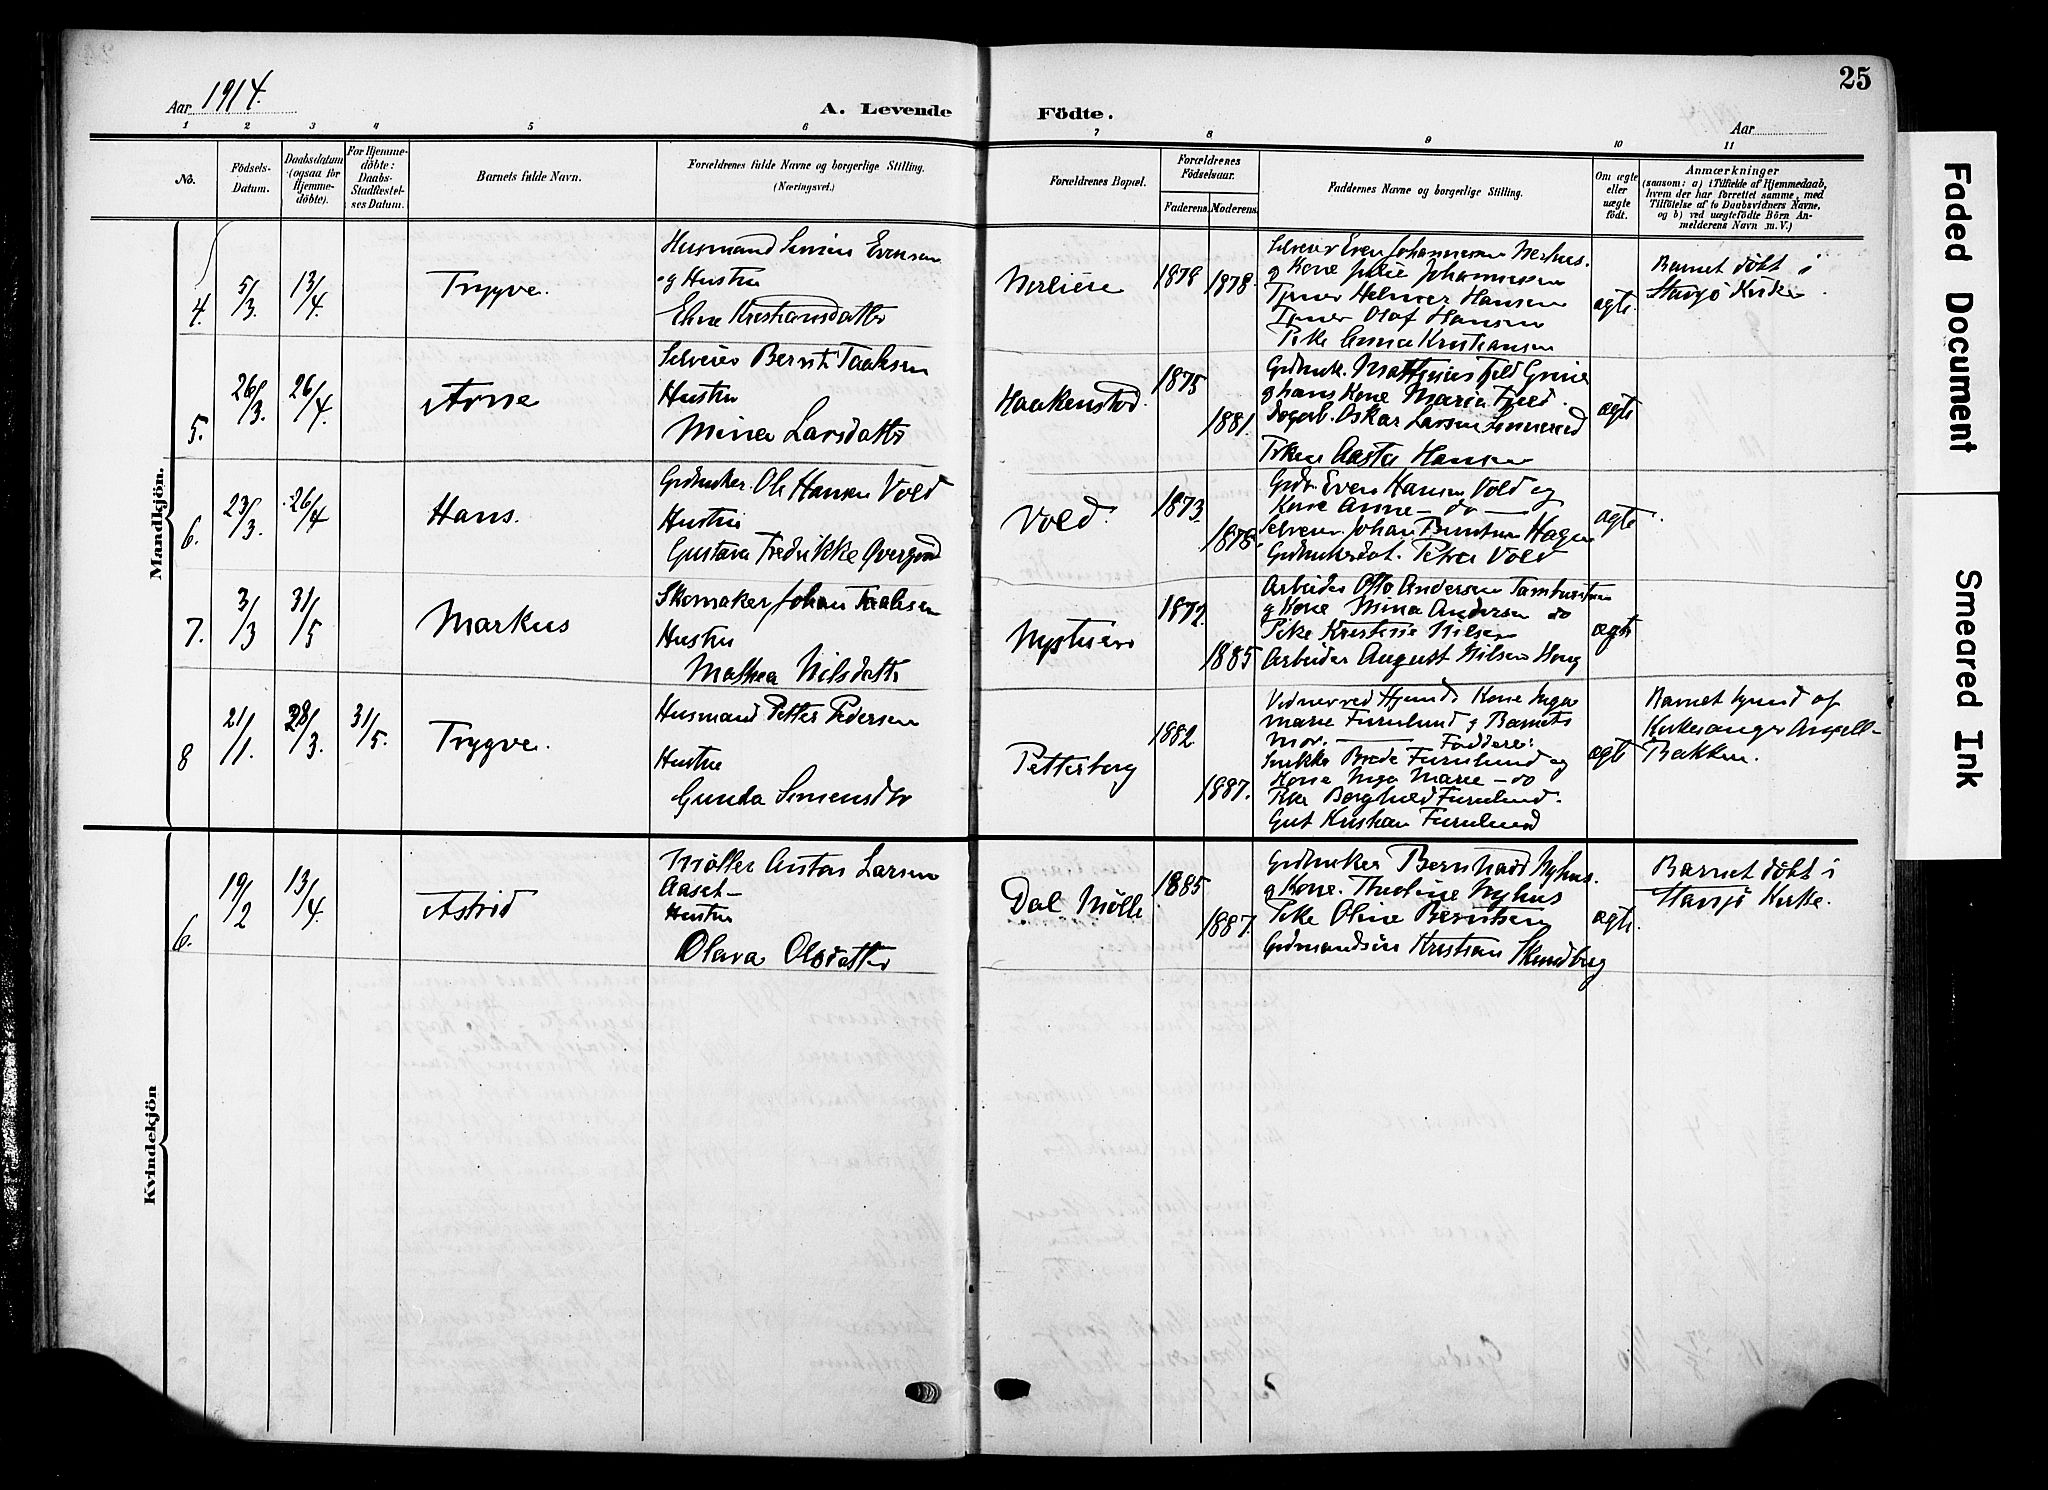 25
Aar 1914.
A. Levende Födte.
Aar
1 2 3 4 5 6 7 8 9 10 11
No.
Födsels-
Datum.
Daabsdatum
(ogsaa for
Hjemme-
döbte).
For Hjemme-
döbte:
Daabs-
Stadfæstel-
ses Datum.
Barnets fulde Navn.
Forældrenes fulde Navne og borgerlige Stilling.
(Næringsvei.)
Forældrenes Bopæl.
Forældrenes
Födselsaar.
Faderens. Moderens.
Faddernes Navne og borgerlige Stilling.
Om ægte
eller
uægte
födt.
Anmærkninger
(saasom: a) i Tilfælde af Hjemmedaab,
hvem der har forrettet samme, med
Tilföielse af to Daabsvidners Navne,
og b) ved uægtefödte Börn An-
melderens Navn m. V.)
Mandkjön.
4. 5/3 13/4 Trygve.
Husmand Evensen
og Hustru
Kristiansdatter
1878 1878.
Selveier Even Johannesen
og Kone Julie Johannesen
Tjener Helmer Hansen
Tjener Olaf Hansen
Pike Anna Kristiansen
ægte.
Barnet døbt i
Kirke.
5. 26/3 26/4 Arne
Selveier Bernt
Hustru
Mina Larsdatter
Haakenstad.
1875 1881.
Grdbruk. Mathinius Fjeld
og hans Kone Maria Fjeld.
Oskar Larsen
Aasta Hansen
ægte
6. 23/3. 26/4 Hans.
Grdbruker. Ole Hansen Vold
Hustru
Gustava Fredrikke
Vold.
1873.
Grdbr. Even Hansen Vold og
Kone Anne — do —
Selveier Johan Hagen
Petra Vold
ægte
7. 3/3 31/5 Markus
Skomaker Johan
Hustru
Mathea Nilsdatter
1872. 1885
Arbeider Otto Andersen
og Kone Mina Andersen do
Pike Kristine Nilsen
Arbeider August Nilsen
ægte
8 21/1. 28/3. 31/5. Trygve.
Husmand Petter Pedersen
Hustru
Gunda Simensdtr
Petterborg
1882 1887.
Vidner ved Hjmd: Kone Inga
Marie Furulund og Barnets
Mor. — Faddere:
Snekker Furulund og
Kone Inga Marie — do
Pike Borghild Furulund.
Gut Kristian Furulund
ægte
Barnet hjmd af
Kirkesanger
Bakken.
Kvindekjön
6. 19/2 13/4 Astrid
Møller Anton Larsen
Aaset —
Hustru
Olava Olsdatter
Dal Mølle
1885 1887.
Grdbruker Bernhard Nyhus.
og Kone. Nyhus
Pike Oline Berntsen
Grdmandssøn Kristian
ægte.
Barnet døbt i
Kirke.
Faded Document
Smeared Ink